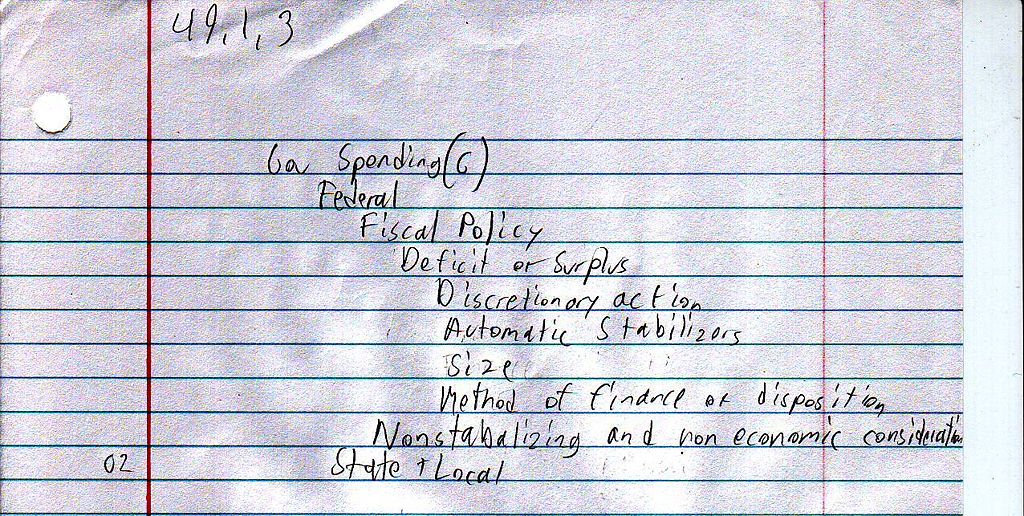 49,1,3
Spending (G)
Federal
Fiscal Policy
Deficit or Surplus
Discretionary action
Automatic Stabilizors
Size
Method of finance or disposition
Nonstabalizing and non economic consideration
02 State + Local